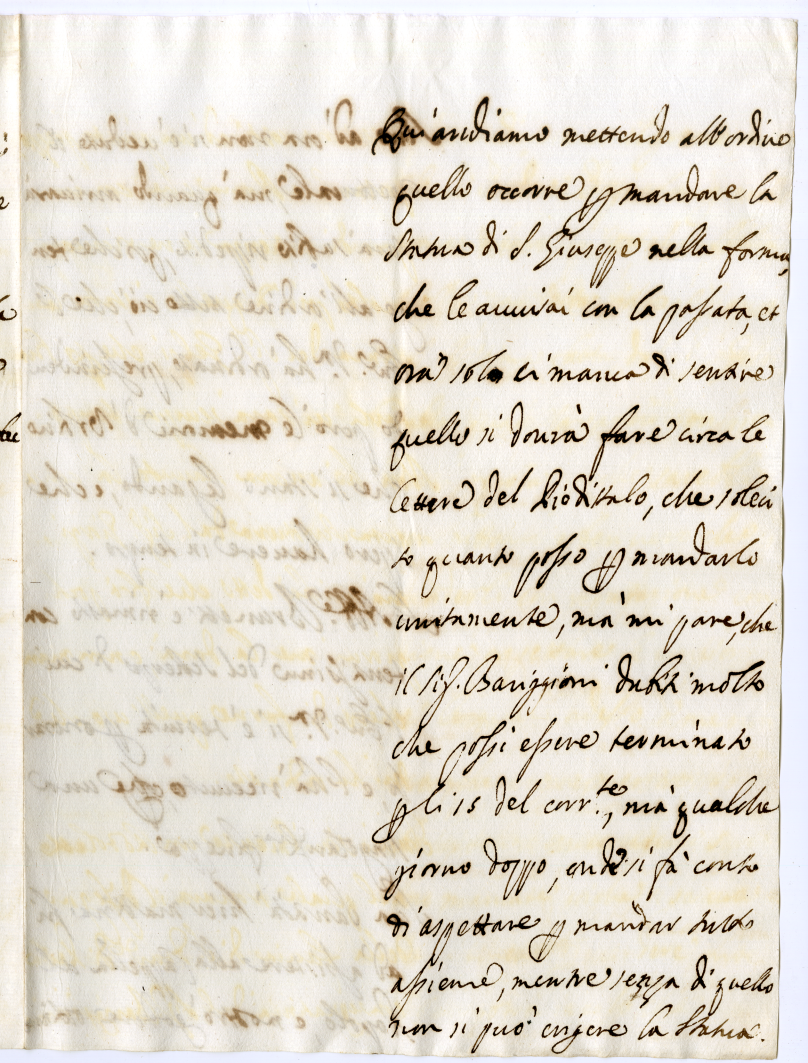 Qui andiamo mettendo all'ordine
quello occorre p mandare la
statua di S. Giuseppe nella forma,
che le avvisai con la passata, et
ora solo ci manca di sentire
quello si dovrà fare circa le
lettere del Piedistalo, che soleci
to quanto posso p mandarlo
unitamente, mà mi pare, che
il Sig. Bariggioni dubiti molto
che possi essere terminato
p li 15 del corr.te, mà qualche
giorno doppo, onde si fà conto
di aspettare p mandar tutto
assieme, mentre senza di quello
non si può erigere la statua.